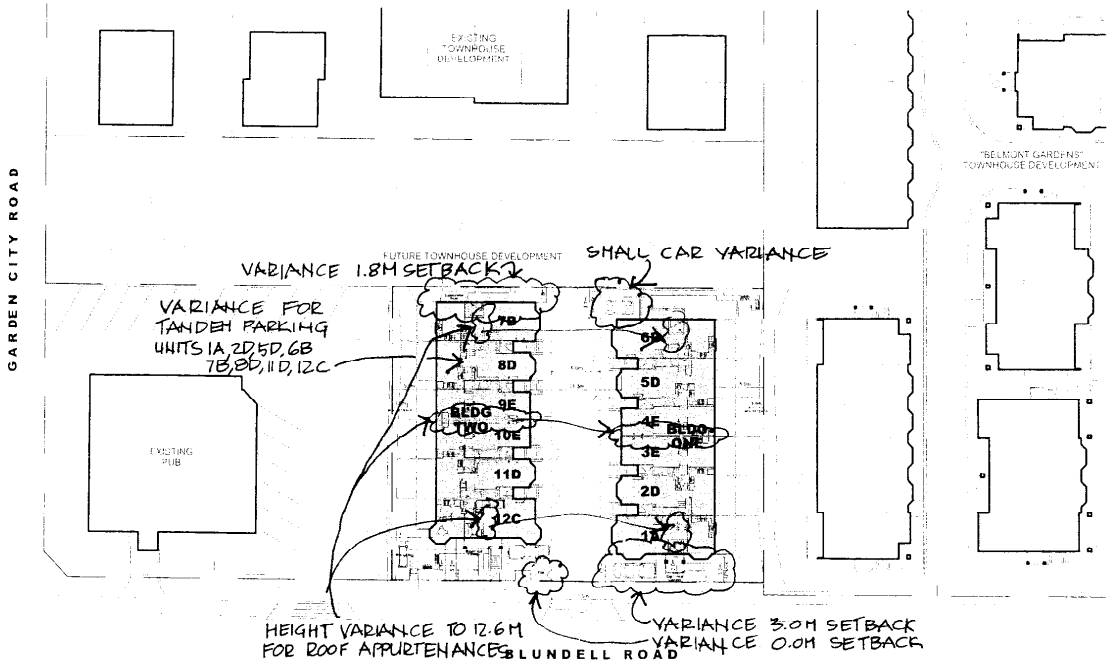 EXISTING
TOWNHOUSE
DEVELOPMENT
"BELMONT GARDENS"
TOWNHOUSE DEVELOPMENT
GARDEN CITY ROAD
FUTURE TOWNHOUSE DEVELOPMENT
SMALL CAR VARIANCE
VARIANCE 1.8M SETBACK
VARIANCE FOR
TANDEM PARKING
UNITS 1A, 2D, 5D, 6B
7B, 8D, 11D, 12C
7B
8D
9E
BLDG
TWO
10E
11D
12C
6B
5D
4E
BLDG
ONE
3E
2D
1A
EXISTING
PUB
HEIGHT VARIANCE TO 12.6M
FOR ROOF APPURTENANCES
VARIANCE 3.0M SETBACK
VARIANCE 0.0M SETBACK
BLUNDELL ROAD